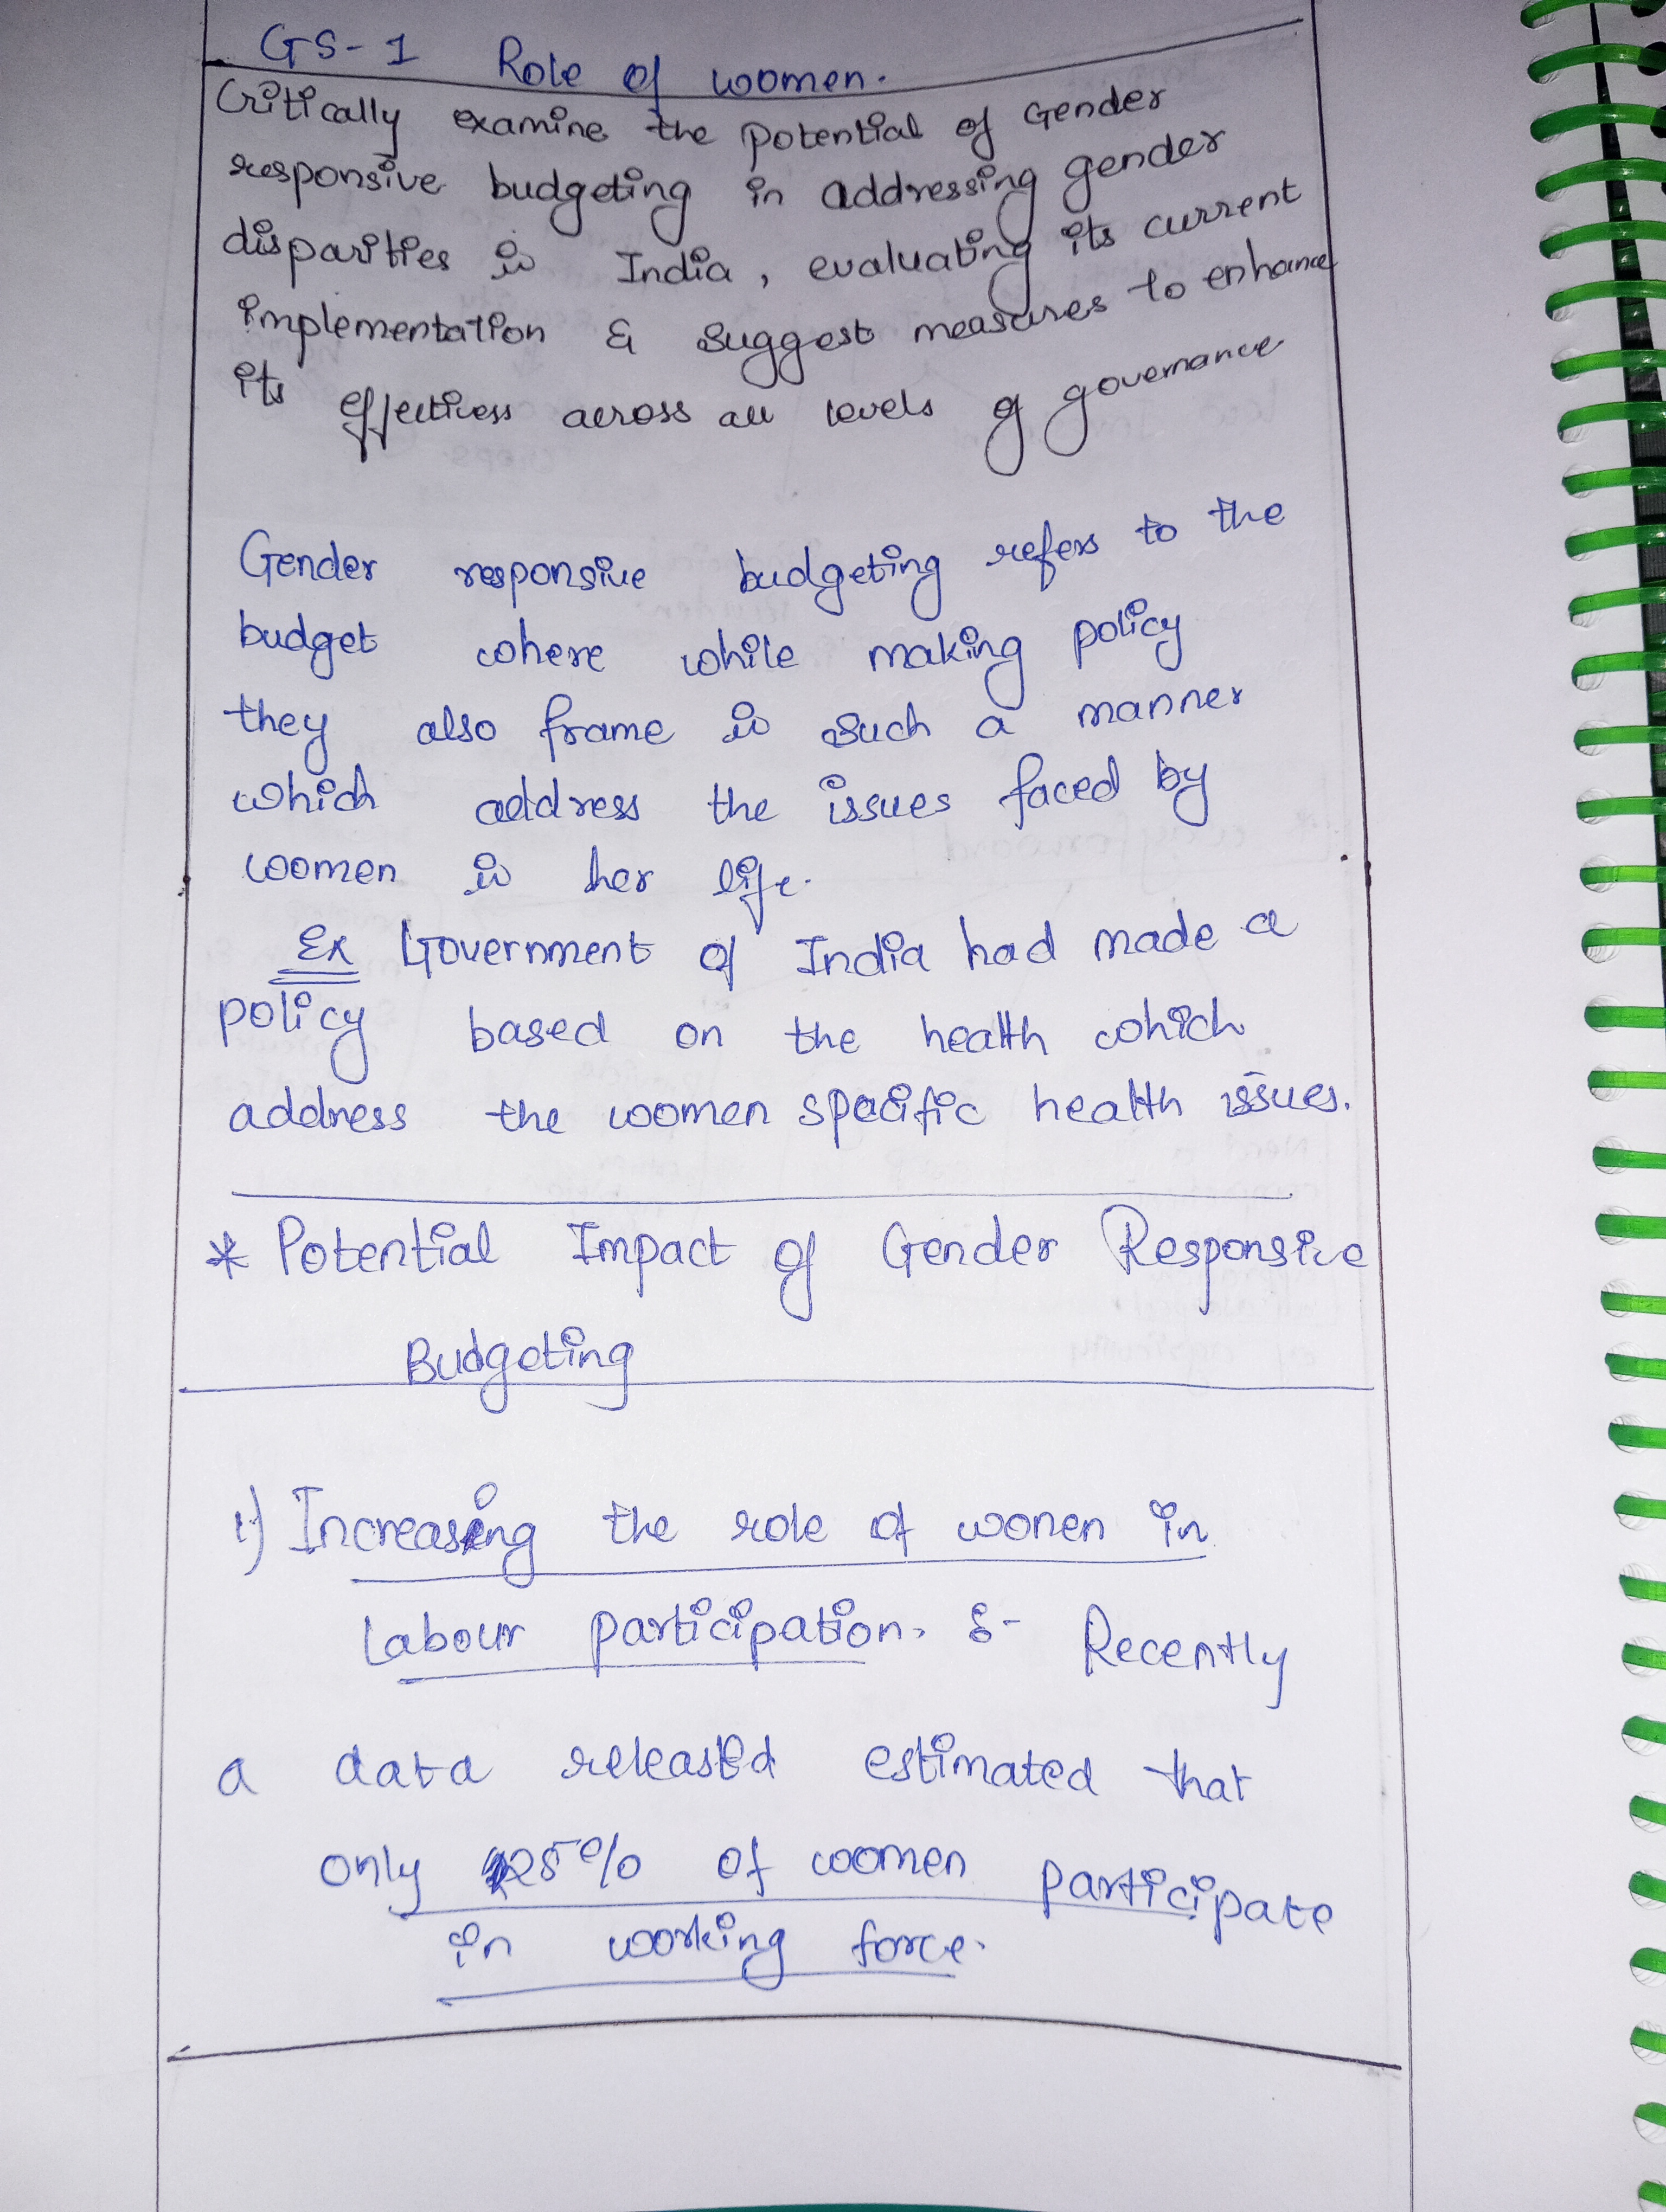 GS-1 Role of women.
Critically examine the potential of Gender
responsive budgeting in addressing gender
disparities in India, evaluating its current
implementation & suggest measures to enhance
its effectivess across all levels of governance
Gender responsive budgeting refers to the
budget where while making policy
they also frame in such a manner
which address the issues faced by
women in her life.
Ex Government of India had made a
policy based on the health which
address the women specific health issues.
* Potential Impact of Gender Responsive
Budgeting
1) Increasing the role of women in
Labour participation. :- Recently
a data released estimated that
only 25% of women participate
in working force.